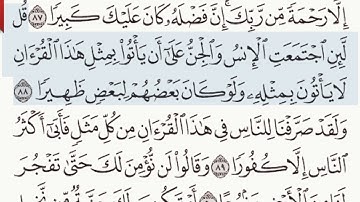 إِلَّا رَحْمَةً مِّن رَّبِّكَ ۚ إِنَّ فَضْلَهُۥ كَانَ عَلَيْكَ كَبِيرًا ٨٧ قُل
لَّئِنِ ٱجْتَمَعَتِ ٱلْإِنسُ وَٱلْجِنُّ عَلَىٰٓ أَن يَأْتُوا۟ بِمِثْلِ هَٰذَا ٱلْقُرْءَانِ
لَا يَأْتُونَ بِمِثْلِهِۦ وَلَوْ كَانَ بَعْضُهُمْ لِبَعْضٍ ظَهِيرًا ٨٨
وَلَقَدْ صَرَّفْنَا لِلنَّاسِ فِى هَٰذَا ٱلْقُرْءَانِ مِن كُلِّ مَثَلٍ فَأَبَىٰٓ أَكْثَرُ
ٱلنَّاسِ إِلَّا كُفُورًا ٨٩ وَقَالُوا۟ لَن نُّؤْمِنَ لَكَ حَتَّىٰ تَفْجُرَ